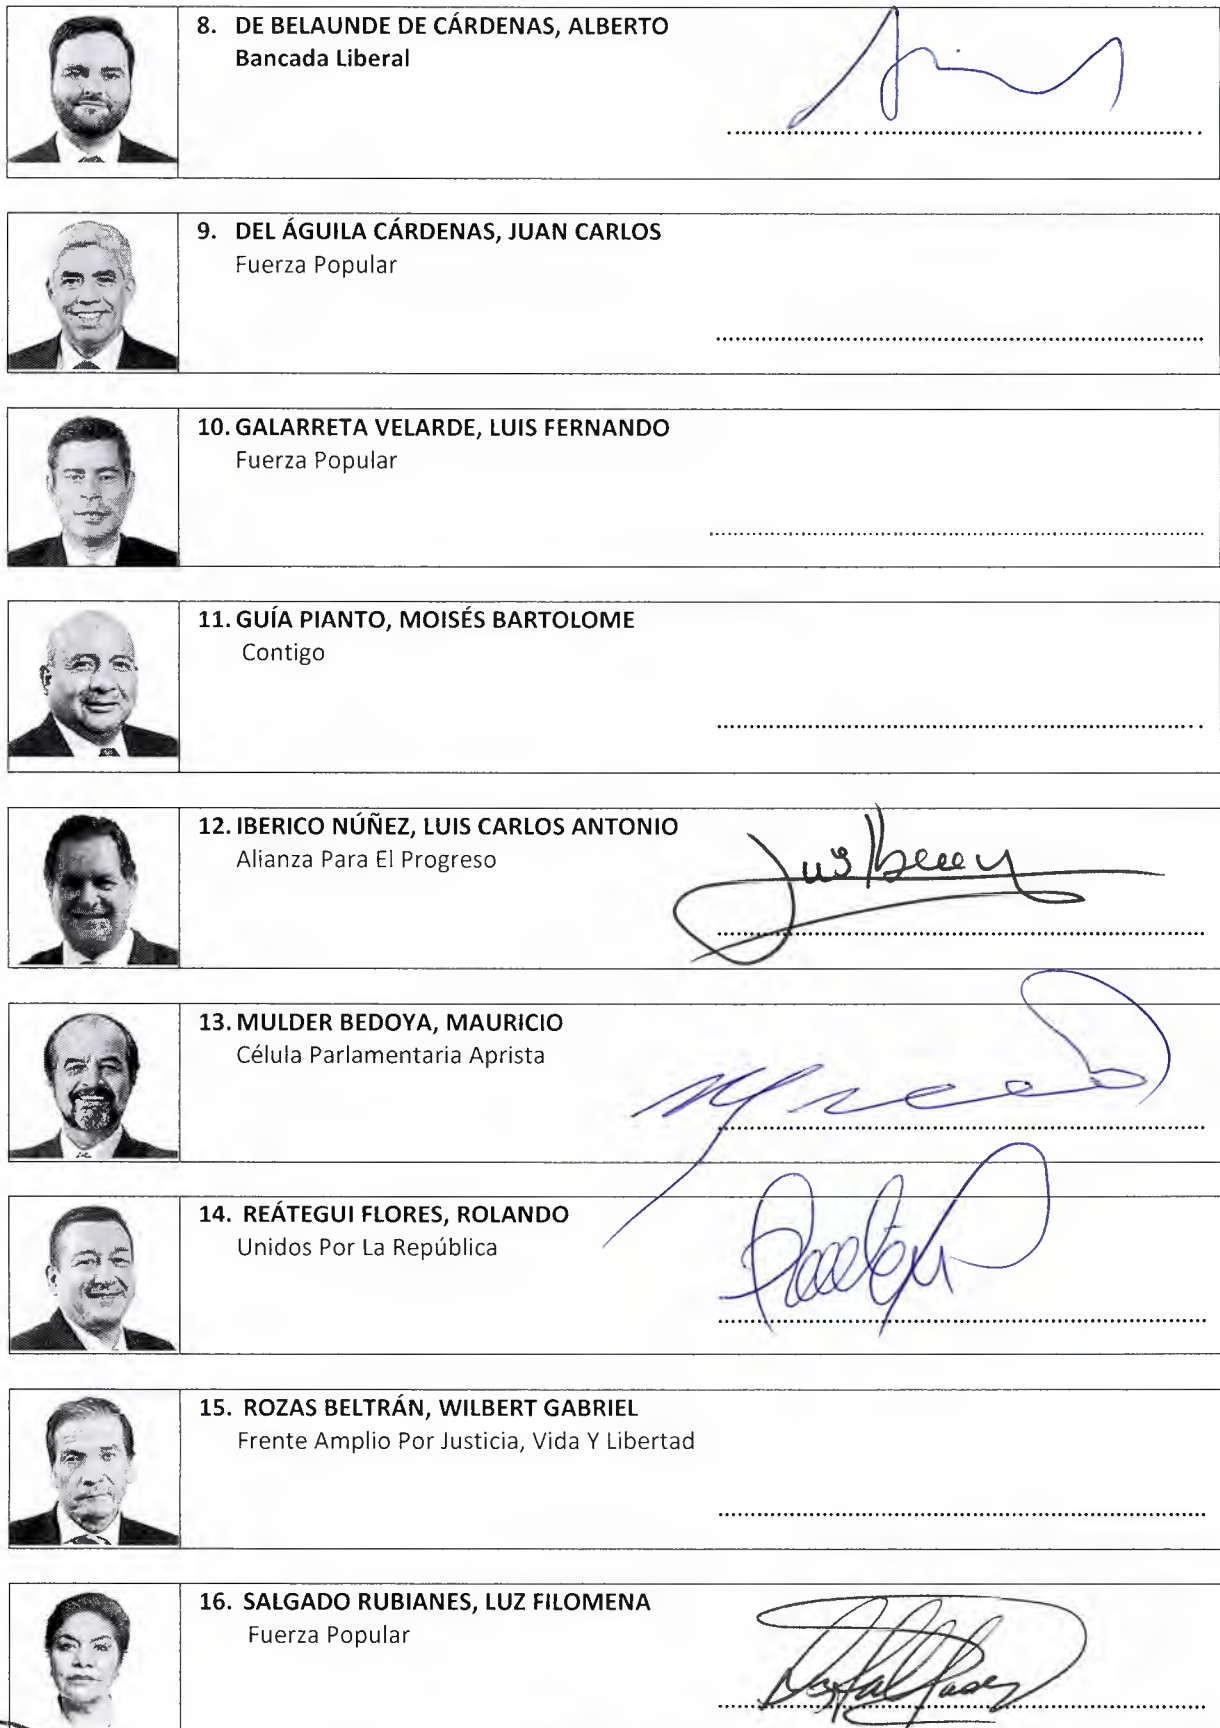 8. DE BELAUNDE DE CÁRDENAS, ALBERTO
Bancada Liberal
9. DEL ÁGUILA CÁRDENAS, JUAN CARLOS
Fuerza Popular
10. GALARRETA VELARDE, LUIS FERNANDO
Fuerza Popular
11. GUÍA PIANTO, MOISÉS BARTOLOME
Contigo
12. IBERICO NÚÑEZ, LUIS CARLOS ANTONIO
Alianza Para El Progreso
13. MULDER BEDOYA, MAURICIO
Célula Parlamentaria Aprista
14. REÁTEGUI FLORES, ROLANDO
Unidos Por La República
15. ROZAS BELTRÁN, WILBERT GABRIEL
Frente Amplio Por Justicia, Vida Y Libertad
16. SALGADO RUBIANES, LUZ FILOMENA
Fuerza Popular